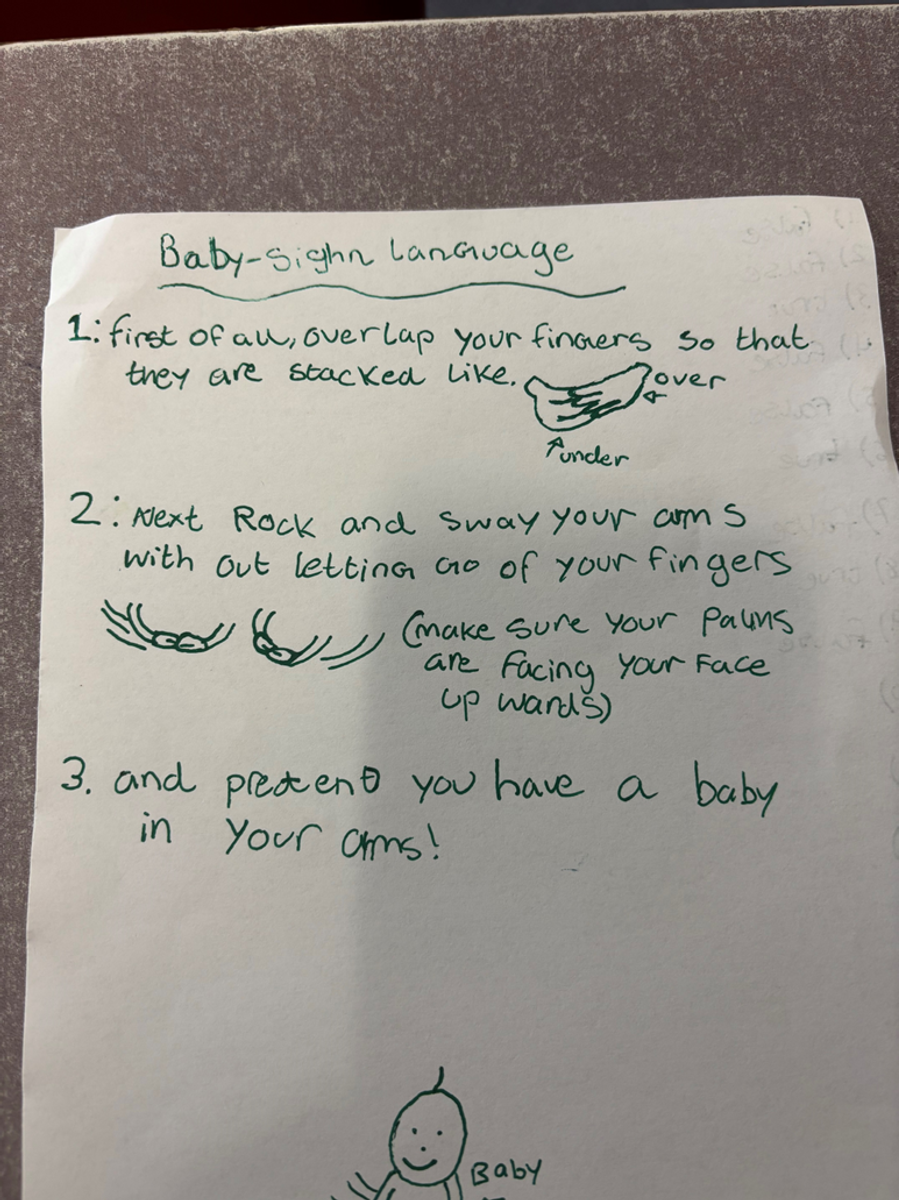 Baby-sighn Language
1: first of all, overlap your fingers so that
they are stacked like.
over
under
2: Next Rock and sway your arms
with out letting go of your fingers
(make sure your palms
are facing your face
up wards)
3. and pretend you have a baby
in your arms!
Baby
1) False
2) False
3) true
4) False
5) False
6) true